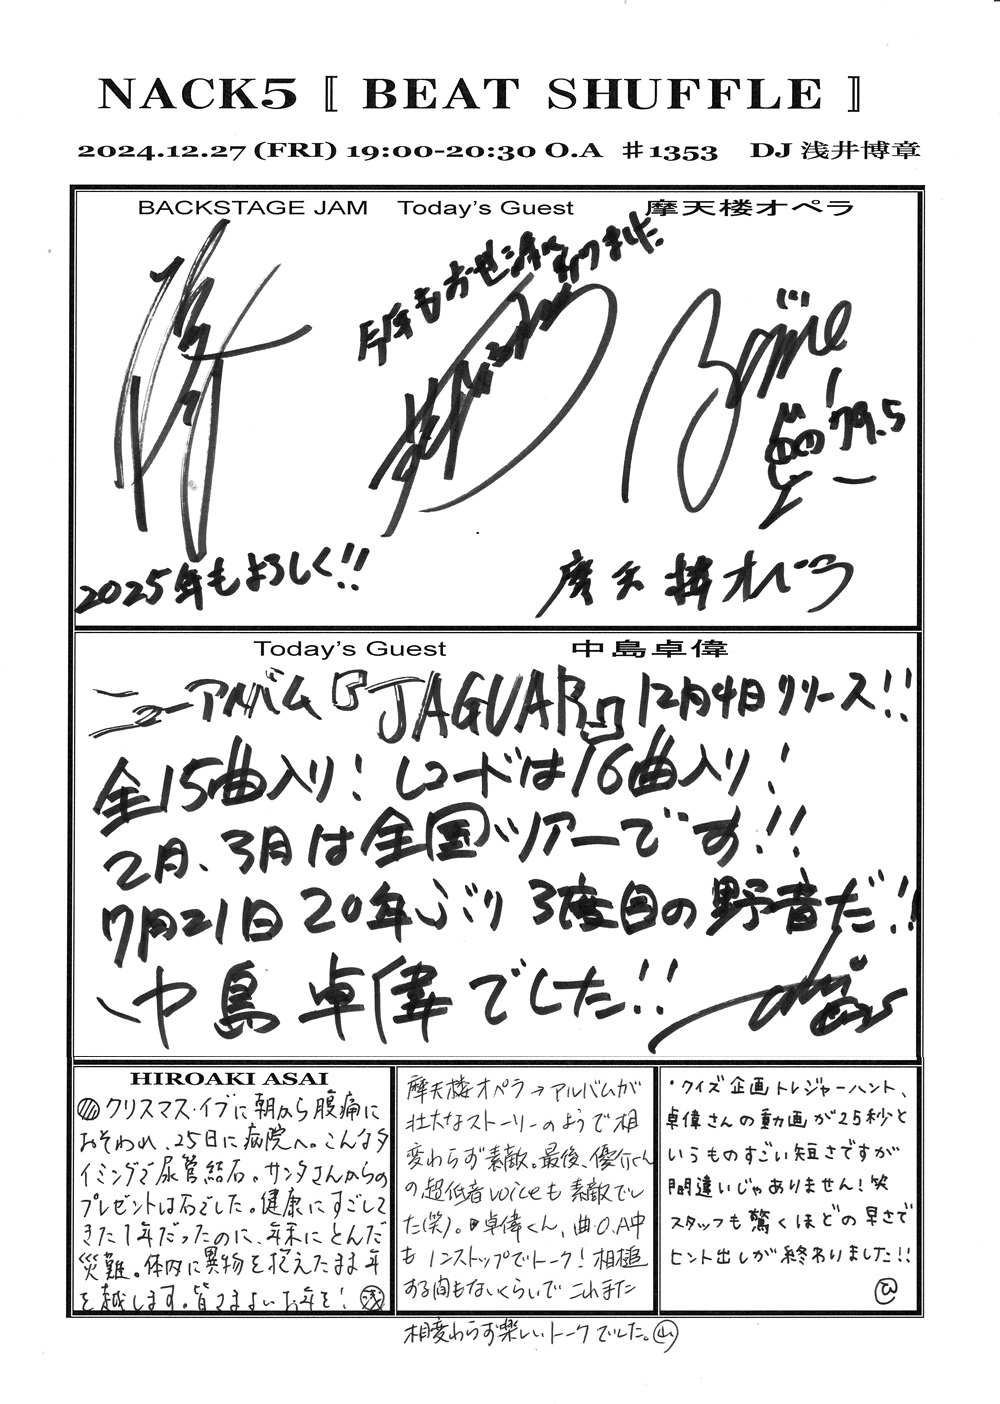 NACK5〚 BEAT SHUFFLE 〛
2024.12.27 (FRI) 19:00-20:30 O.A ♯1353 DJ 浅井博章
BACKSTAGE JAM Today's Guest 摩天楼オペラ
今年もお世話になりました
79.5
2025年もよろしく!!
摩天楼オペラ
Today's Guest 中島卓偉
ニューアルバム『JAGUAR』12月4日リリース!!
全15曲入り! レコードは16曲入り!
2月、3月は全国ツアーです!!
7月21日 20年ぶり 3度目の野音だ!!
中島卓偉でした!!
HIROAKI ASAI
クリスマス・イブに朝から腹痛に
おそわれ、25日に病院へ。こんなタ
イミングで尿管結石。サンタさんからの
プレゼントは石でした。健康にすごして
きた1年だったのに、年末にとんだ
災難。体内に異物を抱えたまま年
を越します。皆さまよいお年を! 浅
摩天楼オペラ→アルバムが
壮大なストーリーのようで相
変わらず素敵。最後、優介くん
の超低音voiceも素敵でし
た(笑)。卓偉くん、曲O.A中
もノンストップでトーク! 相槌
する間もないくらいで これまた
相変わらず楽しいトークでした。山
・クイズ企画トレジャーハント、
卓偉さんの動画が25秒と
いうものすごい短さですが
間違いじゃありません! 笑
スタッフも驚くほどの早さで
ヒント出しが終わりました!!
ひ